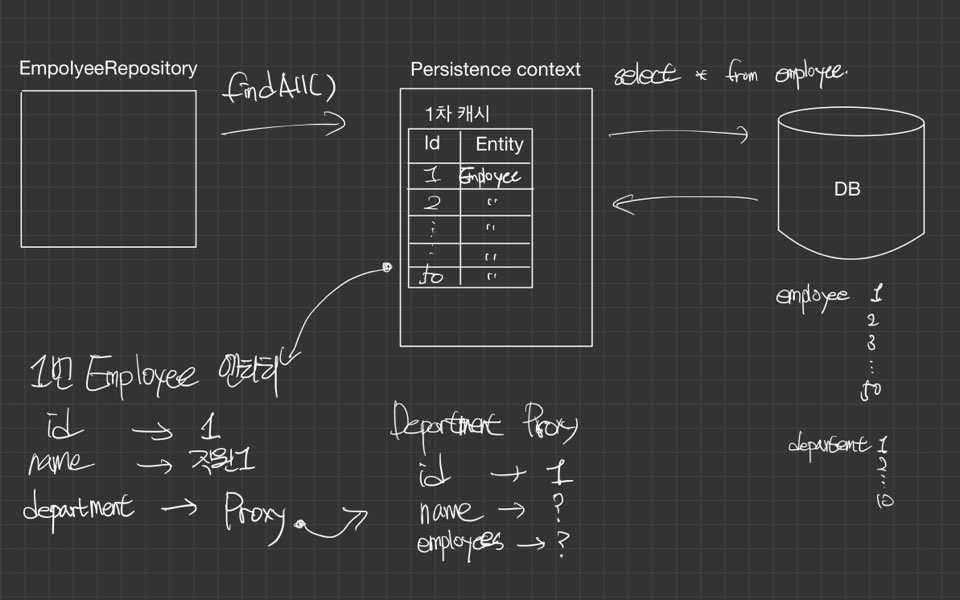 EmpolyeeRepository
findAll()
Persistence context
select * from employee.
1차 캐시
Id Entity
1 Employee
2 "
⋮ "
⋮ "
50 "
DB
employee 1
2
3
...
50
1번 Employee 엔티티
id → 1
name → 직원1
department → Proxy
Department Proxy
id → 1
name → ?
employees → ?
departemt 1
2
...
10